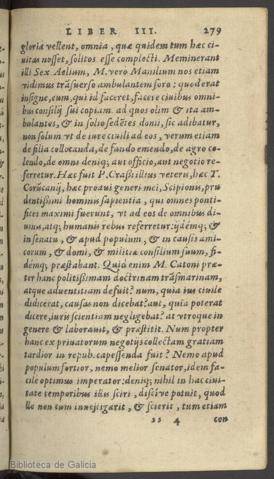 LIBER III. 279
gloria vellent, omnia, quæ quidem tum hæc ci-
uitas nosset, solitos esse complecti. Meminerant
illi Sex Aelium, M. vero Manilium nos etiam
vidimus trāsuerso ambulantem foro: quod erat
insigne, eum, qui id faceret, facere ciuibus omni-
bus consilij sui copiam. ad quos olim & ita am-
bulantes, & in solio sedētes domi, sic adibatur,
non solum vt de iure ciuili ad eos, verum etiam
de filia collocanda, de fundo emendo, de agro co-
lendo, de omni deniq; aut officio, aut negotio re-
ferretur. Hæc fuit P. Crassi illius veteris, hæc T.
Corūcanij, hæc proaui generi mei, Scipionis, pru
dentissimi hominis sapientia, qui omnes ponti-
fices maximi fuerunt, vt ad eos de omnibus di-
uinis, atq; humanis rebus referretur: ijdēmq; &
in senatu, & apud populum, & in causis ami-
corum, & domi, & militiæ consilium suum, fi-
demq; præstabant. Quid enim M. Catoni præ-
ter hanc politissimam doctrinam trāsmarinam,
atque aduentitiam defuit? num, quia ius ciuile
didicerat, causas non dicebat? aut, quia poterat
dicere, iuris scientiam negligebat? at vtroque in
genere & laborauit, & præstitit. Num propter
hanc ex priuatorum negotijs collectam gratiam
tardior in repub. capessenda fuit? Nemo apud
populum fortior, nemo melior senator, idem fa-
cile optimus imperator: deniq; nihil in hac ciui-
tate temporibus illis sciri, disciue potuit, quod
ille non tum inuestigarit, & scierit, tum etiam
4 con
Biblioteca de Galicia